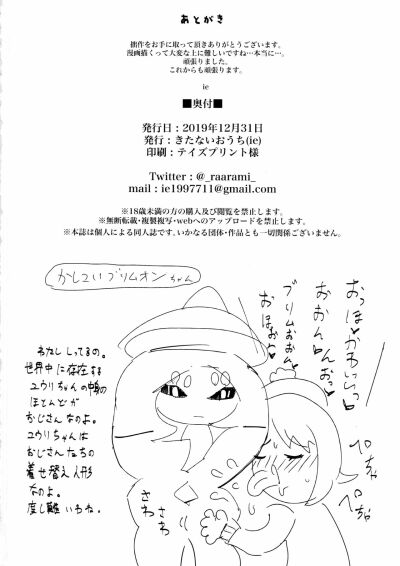 あとがき
拙作をお手に取って頂きありがとうございます。
漫画描くって大変な上に難しいですね…本当に…。
頑張りました。
これからも頑張ります。
ie
■奥付■
発行日：2019年12月31日
発行：きたないおうち(ie)
印刷：テイズプリント様
Twitter：@_raarami_
mail：ie1997711@gmail.com
※18歳未満の方の購入及び閲覧を禁止します。
※無断転載・複製複写・webへのアップロードを禁止します。
※本誌は個人による同人誌です。いかなる団体・作品とも一切関係ございません。
かしこいブリムオンちゃん
おっほ♡かわいいっ♡
おおん♡んおっ♡
ブリムおおん♡
おほお♡
わたししってるの。
世界中に存在する
ユウリちゃんの中身の
ほとんどが
おじさんなのよ。
ユウリちゃんは
おじさんたちの
着せ替え人形
なのよ。
度し難いわね。
ペちゃ
ペちゃ
さわ
さわ